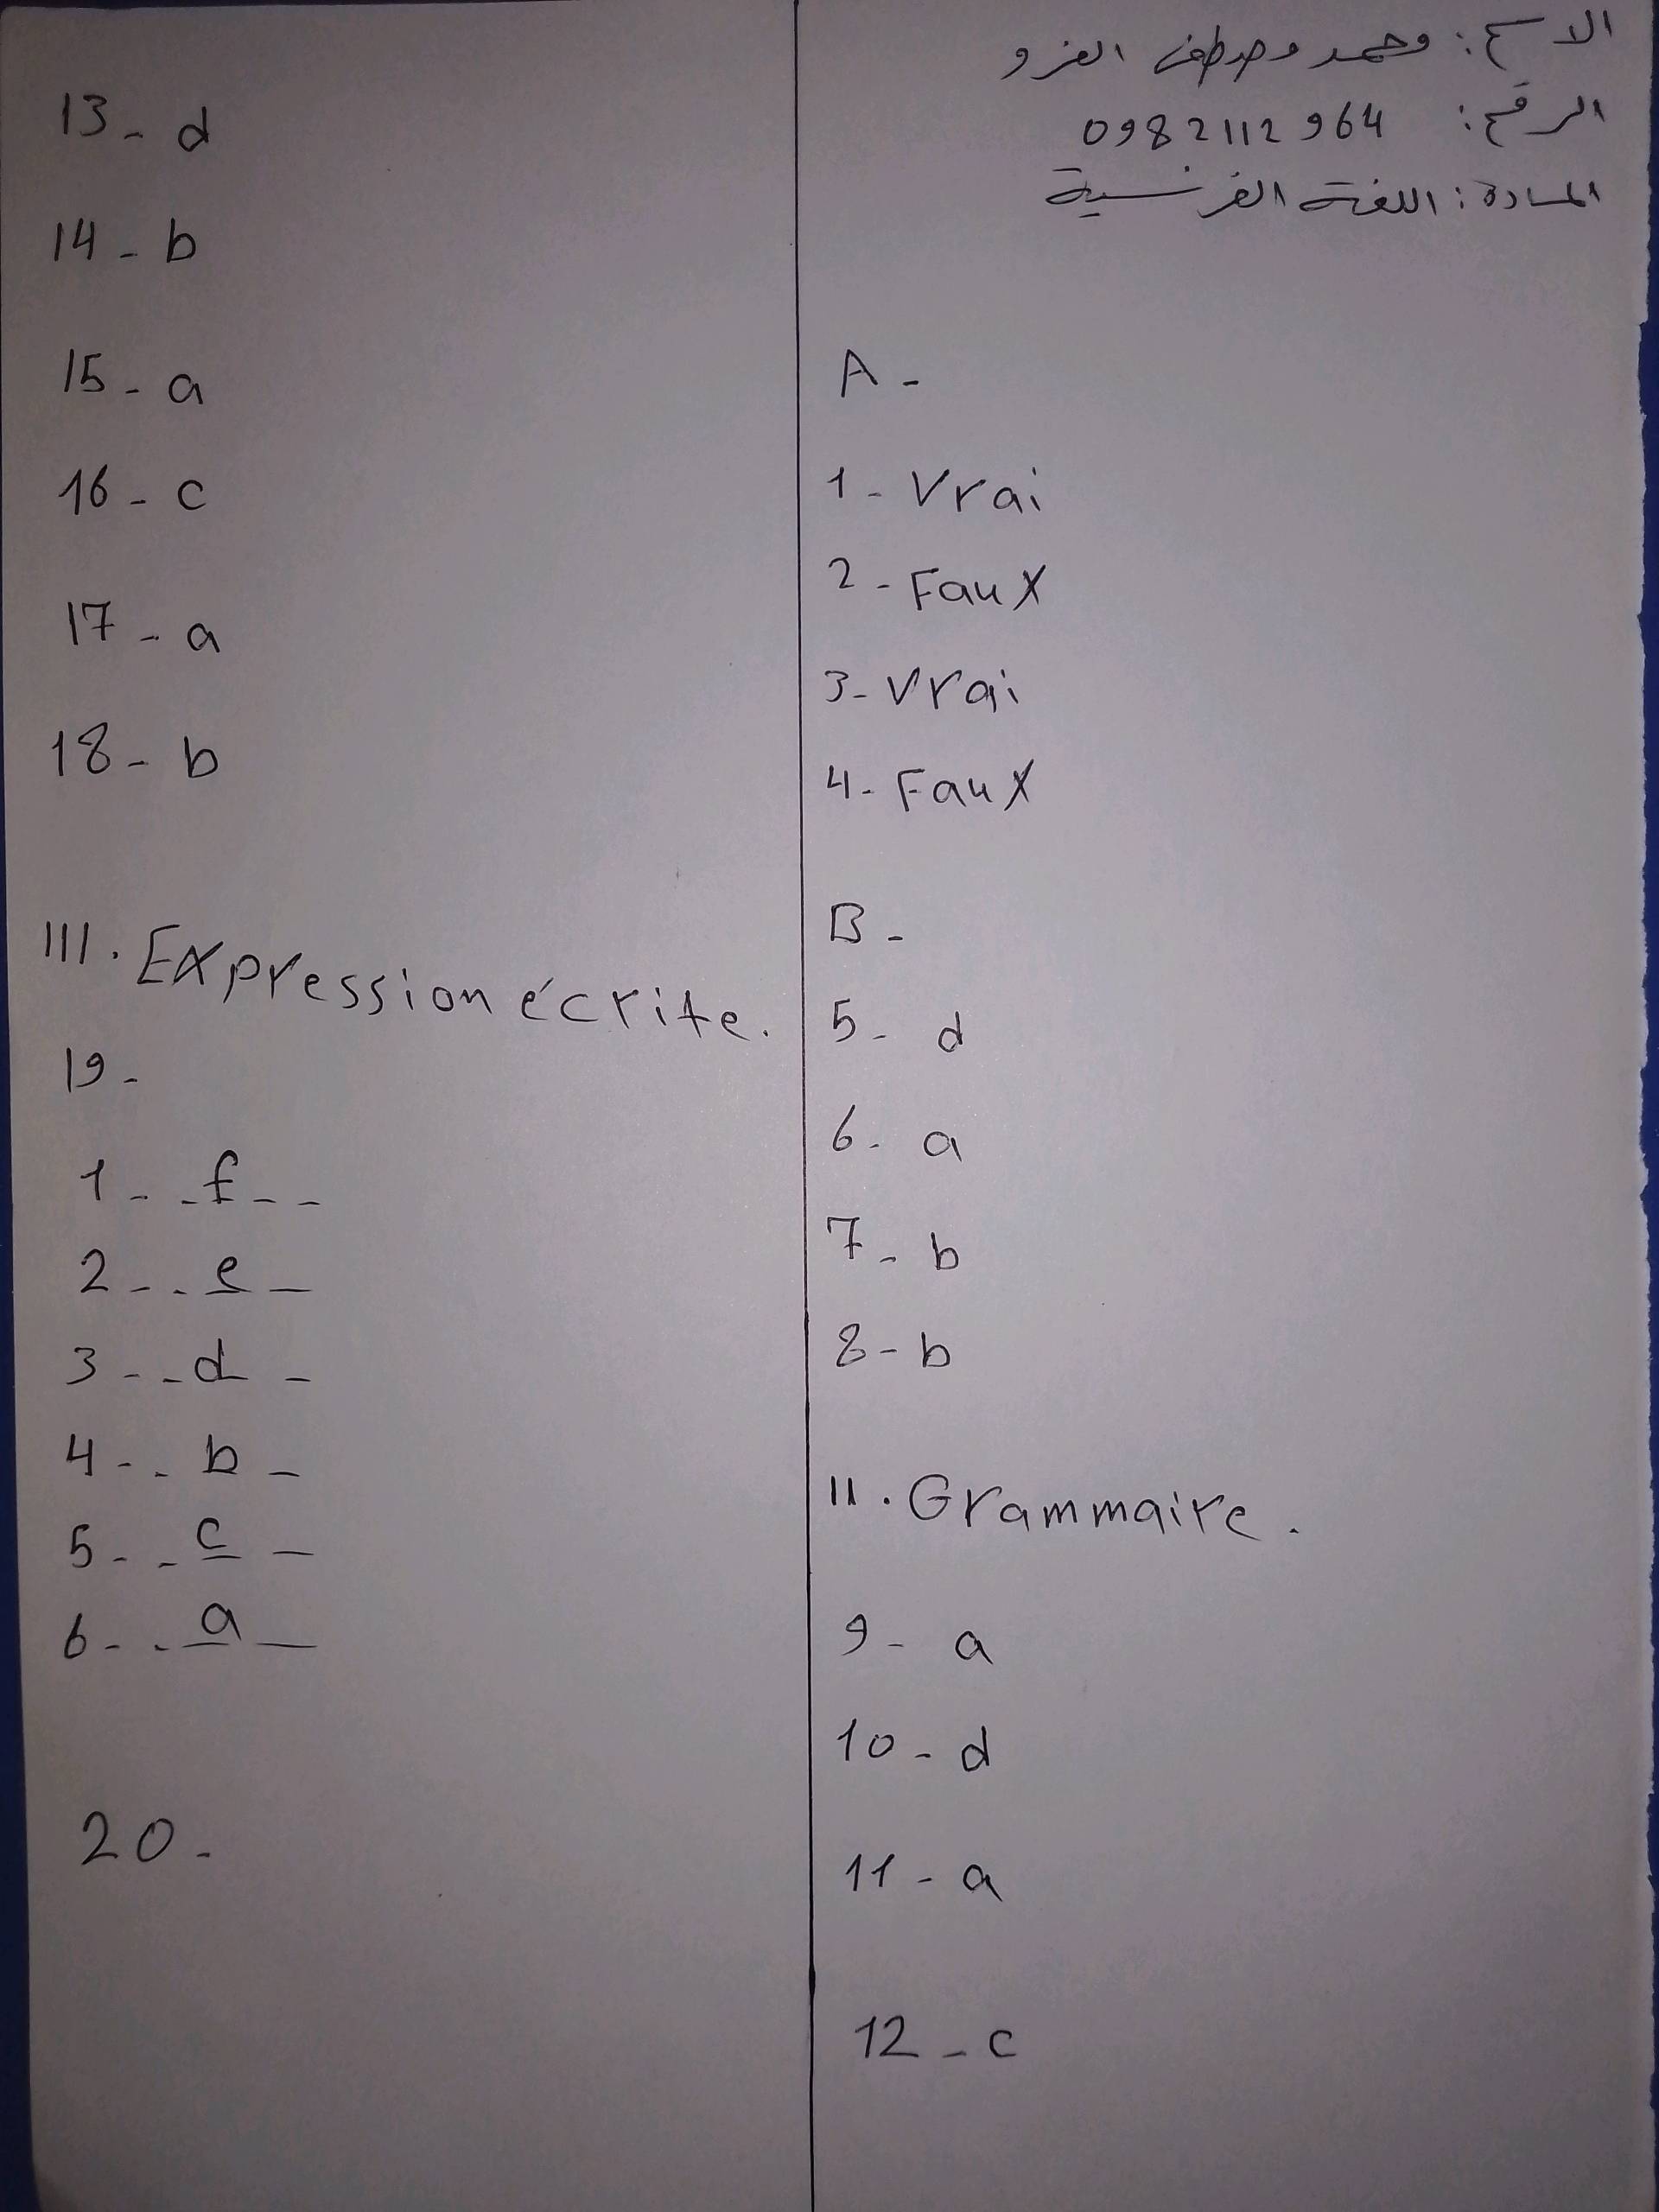 الاسم: محمد مصطفى الغزو
الرقم: 0982112964
المادة: اللغة الفرنسية
A -
1 - Vrai
2 - Faux
3 - Vrai
4 - Faux
B -
5 - d
6 - a
7 - b
8 - b
II. Grammaire.
9 - a
10 - d
11 - a
12 - c
13 - d
14 - b
15 - a
16 - c
17 - a
18 - b
III. Expression écrite.
19 -
1 - - f - -
2 - - e -
3 - - d -
4 - - b -
5 - - c -
6 - - a -
20 -